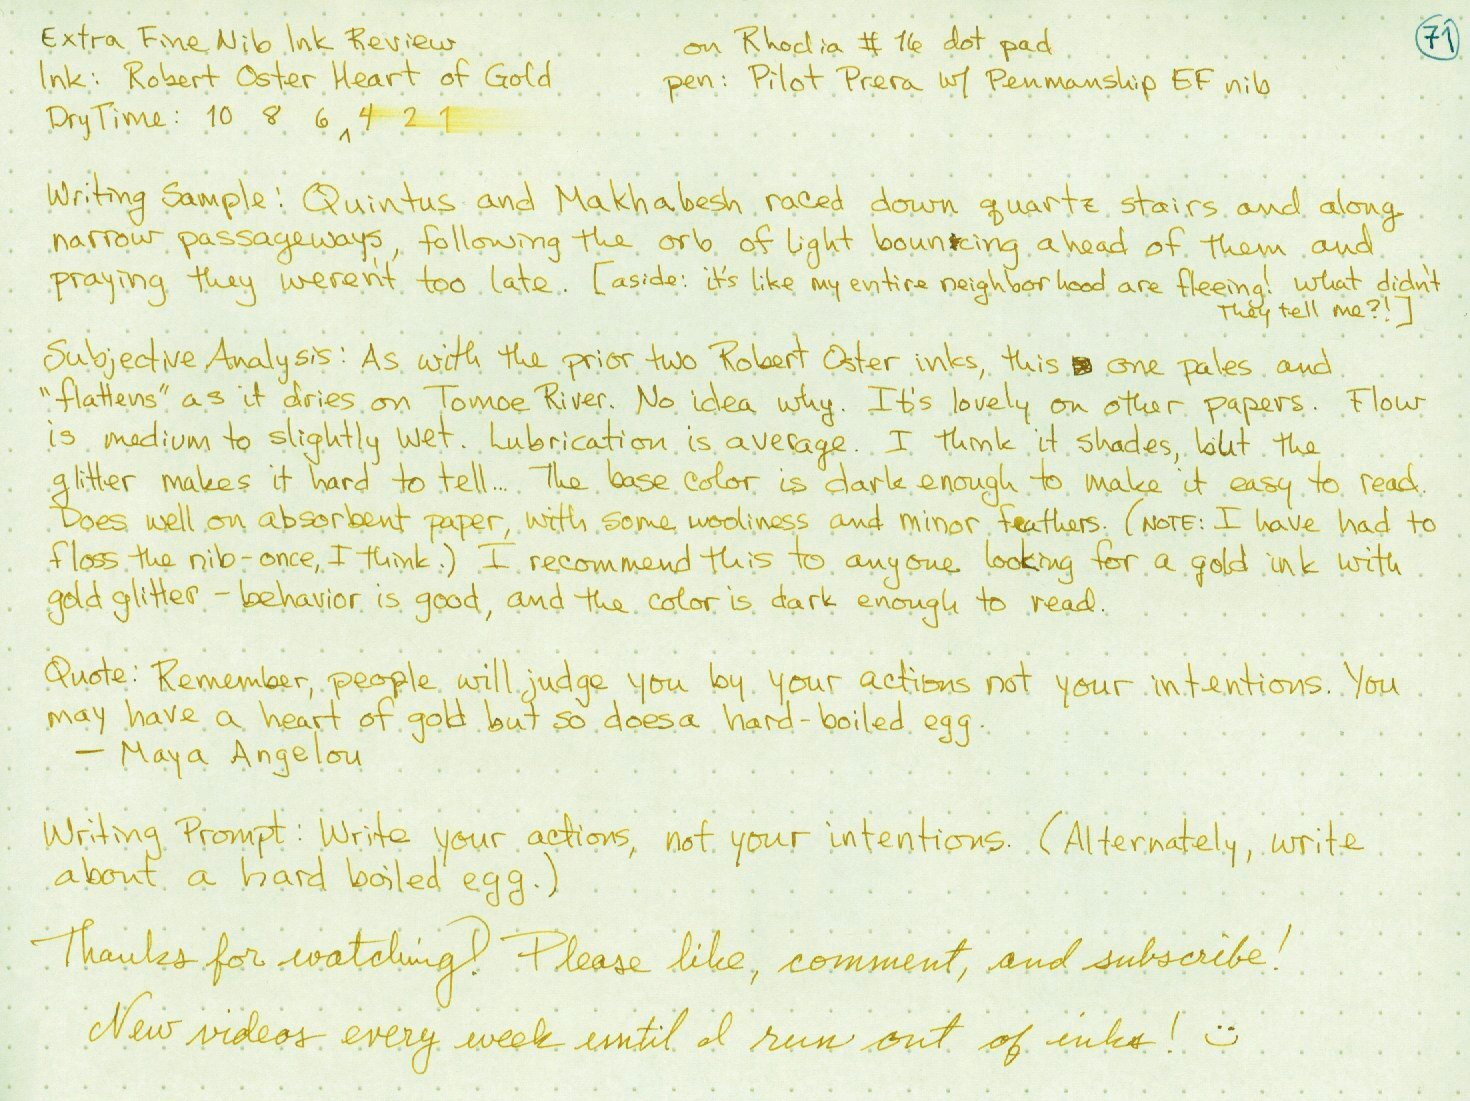 Extra Fine Nib Ink Review on Rhodia # 16 dot pad 71
Ink: Robert Oster Heart of Gold pen: Pilot Prera w/ Penmanship EF nib
Dry Time: 10 8 6 ^ 4 2 1
Writing Sample: Quintus and Makhabesh raced down quartz stairs and along
narrow passageways, following the orb of light bouncing ahead of them and
praying they weren't too late. [aside: it's like my entire neighborhood are fleeing! What didn't
they tell me?!]
Subjective Analysis: As with the prior two Robert Oster inks, this one pales and
"flattens" as it dries on Tomoe River. No idea why. It's lovely on other papers. Flow
is medium to slightly wet. Lubrication is average. I think it shades, but the
glitter makes it hard to tell... The base color is dark enough to make it easy to read.
Does well on absorbent paper, with some wooliness and minor feathers. (NOTE: I have had to
floss the nib - once, I think.) I recommend this to anyone looking for a gold ink with
gold glitter - behavior is good, and the color is dark enough to read.
Quote: Remember, people will judge you by your actions not your intentions. You
may have a heart of gold but so does a hard-boiled egg.
— Maya Angelou
Writing Prompt: Write your actions, not your intentions. (Alternately, write
about a hard boiled egg.)
Thanks for watching! Please like, comment, and subscribe!
New videos every week until I run out of inks! :)